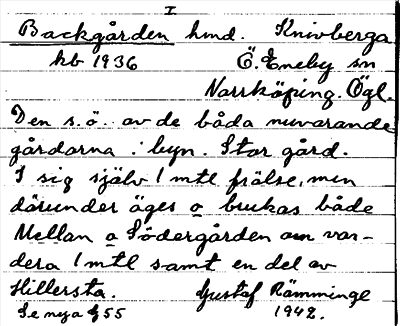 I
Backgården hmd. Knivberga
kb 1936 Ö. Eneby sn
Norrköping. Ögl.
Den s.ö. av de båda nuvarande
gårdarna i byn. Stor gård.
I sig själv 1 mtl frälse, men
därunder äges o brukas båda
Mellan o Södergården om var-
dera 1 mtl samt en del av
Hillersta. Gustaf Rämminge
Se nya § 55 1942.